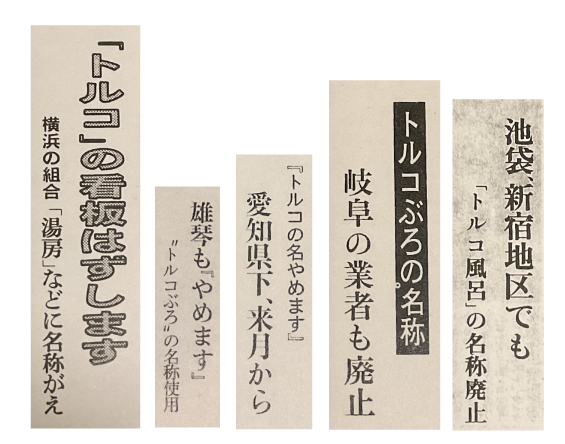 「トルコ」の看板はずします
横浜の組合「湯房」などに名称がえ
雄琴も『やめます』
〝トルコぶろ〟の名称使用
『トルコの名やめます』
愛知県下、来月から
トルコぶろの名称
岐阜の業者も廃止
池袋、新宿地区でも
「トルコ風呂」の名称廃止